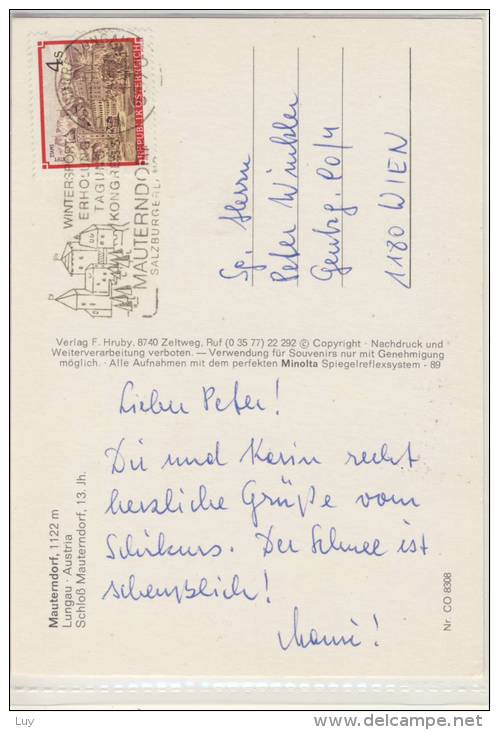 4 S
REPUBLIK ÖSTERREICH
WINTERSPORT
ERHOLUNG
TAGUNG
KONGRESS
MAUTERNDO
SALZBURGERL
Sp. Herrn
Peter Winkler
Gentzg. 90/4
1180 WIEN
Verlag F. Hruby, 8740 Zeltweg, Ruf (0 35 77) 22 292 © Copyright · Nachdruck und
Weiterverarbeitung verboten. — Verwendung für Souvenirs nur mit Genehmigung
möglich. · Alle Aufnahmen mit dem perfekten Minolta Spiegelreflexsystem - 89
Lieber Peter!
Dir und Karin recht
herzliche Grüße vom
Schikurs. Der Schnee ist
scheußlich!
Mami!
Mauterndorf, 1122 m
Lungau · Austria
Schloß Mauterndorf, 13. Jh.
Nr. CO 8308
Luy
www.delcampe.net